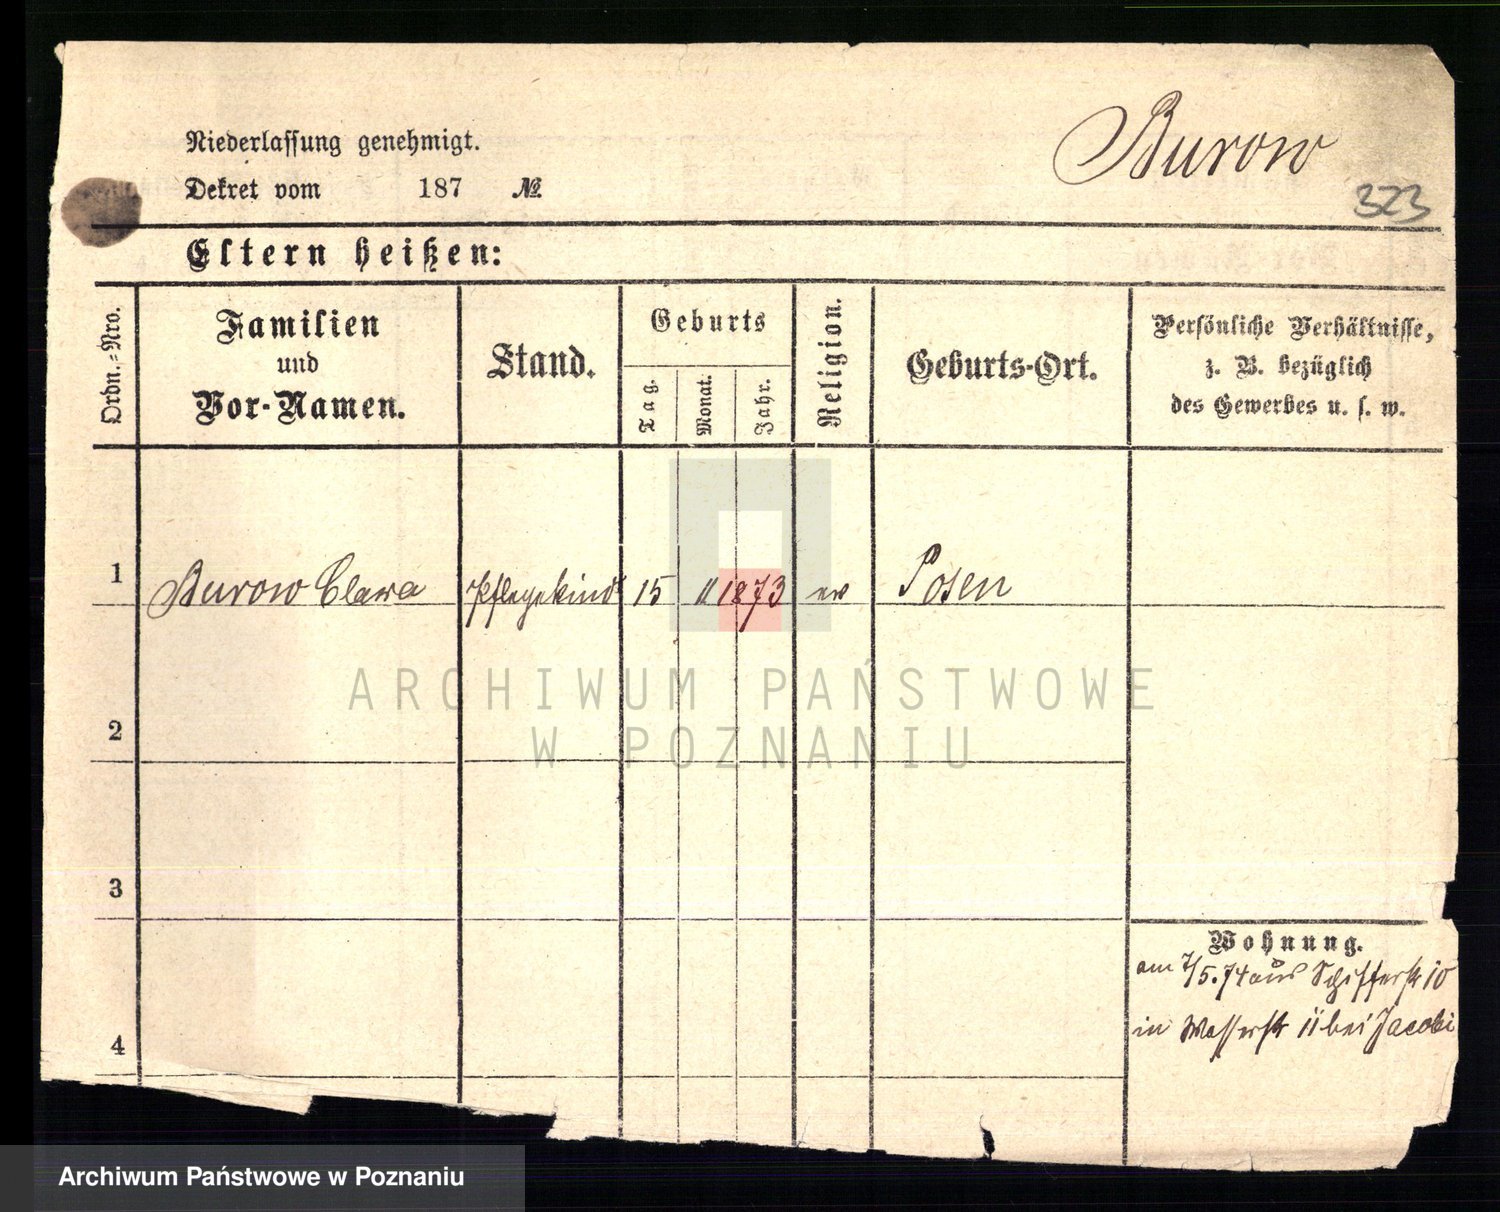 Burow
Niederlassung genehmigt.
Dekret vom 187 №
323
Eltern heißen:
Ordn.=Nro.
Familien
und
Vor-Namen.
Stand.
Geburts
Tag.
Monat.
Jahr.
Religion.
Geburts-Ort.
Persönliche Verhältnisse,
z. B. bezüglich
des Gewerbes u. s. w.
1 Burow Clara Pflegekind 15 11 1873 ev Posen
2
3
4
Wohnung.
am 7/5.74 aus Schifferstr 10
in Wasserstr 11 bei Jacobi
ARCHIWUM PAŃSTWOWE
W POZNANIU
Archiwum Państwowe w Poznaniu